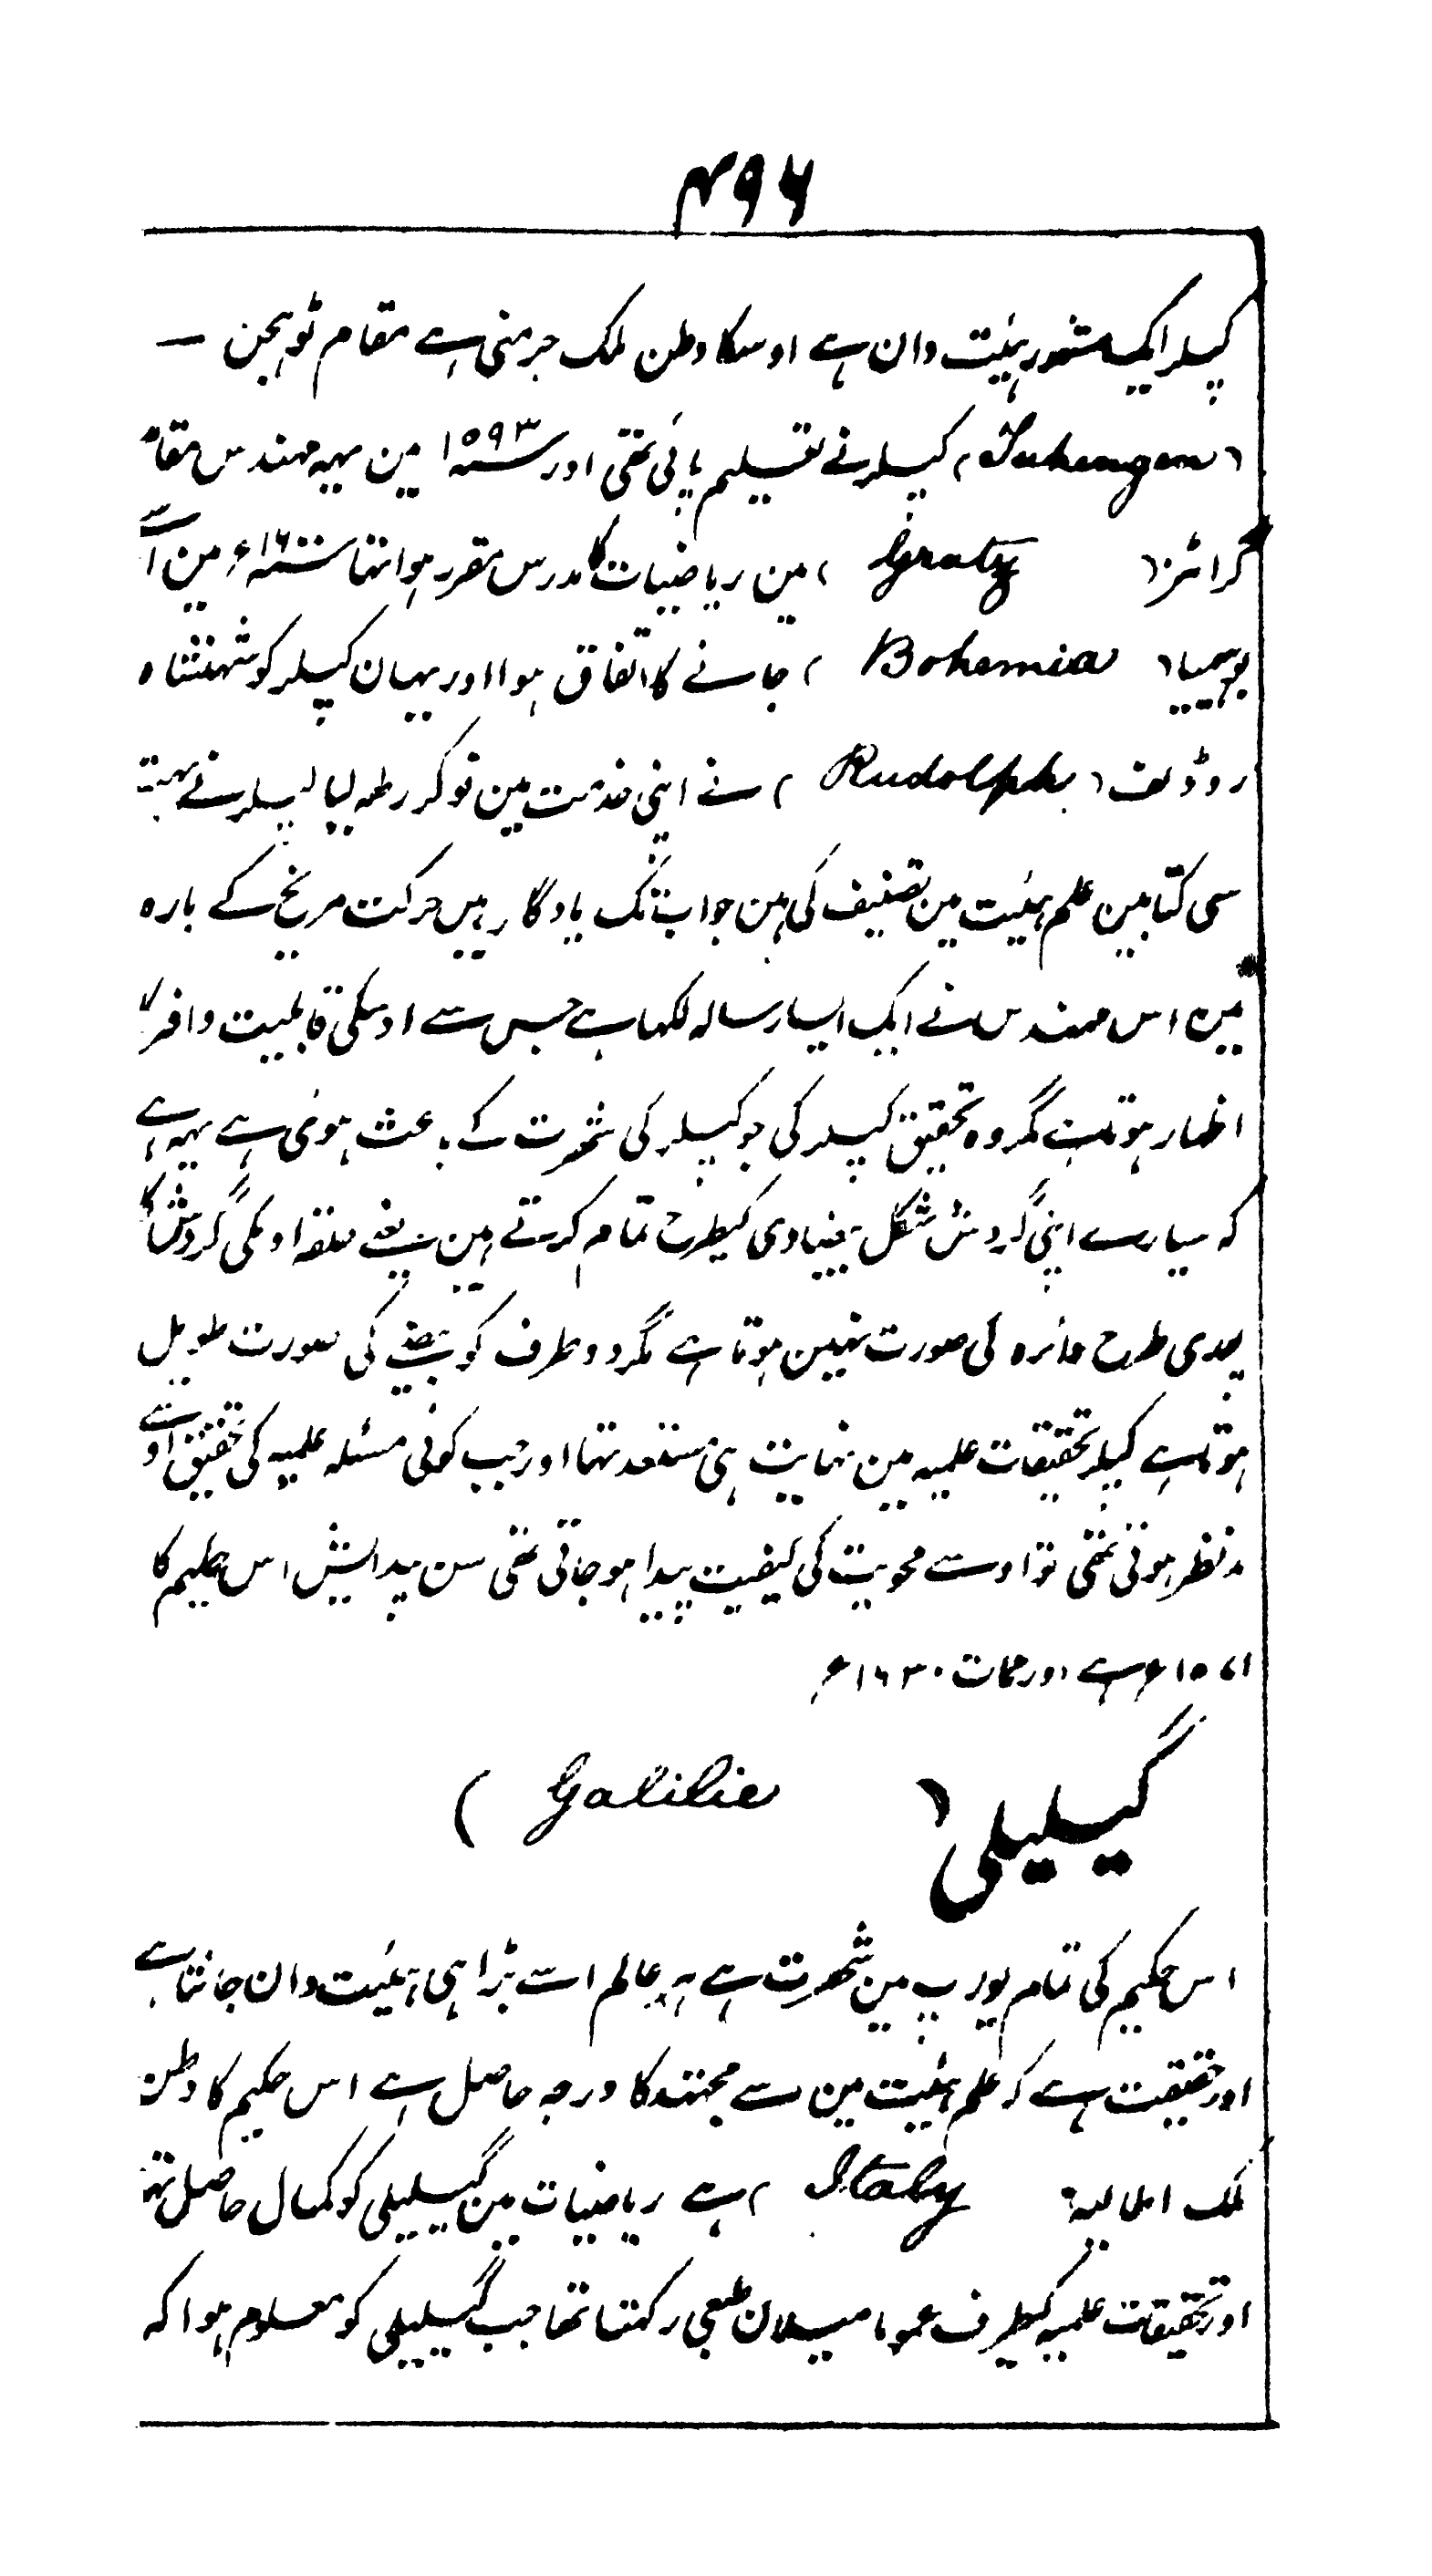 ۴۹۶
کیپلر ایک مشہور ہیئت دان ہے اوسکا وطن ملک جرمنی ہے مقام ٹوبنجن —
(Tubengen) کیپلر نے تعلیم پائی تھی اور سنہ ۱۵۹۳ مین یہہ مہندس مقام
گراٹز (Gratz) مین ریاضیات کا مدرس مقرر ہوا تہا سنہ ۱۶۰۰ء مین اسے
بوہیمیا (Bohemia) جانے کا اتفاق ہوا اور یہان کیپلر کو شہنشاہ
روڈولف (Rudolph) نے اپنی خدمت مین نوکر رکہہ لیا کیپلر نے بہت
سی کتابین علم ہیئت مین تصنیف کی ہین جو ابتک یادگار ہیں حرکت مریخ کے بارہ
مین اس مہندس نے ایک ایسا رسالہ لکہا ہے جس سے اوسکی قابلیت وافر کا
اظہار ہوتا ہے مگر وہ تحقیق کیپلر کی جو کیپلر کی شہرت کے باعث ہوئی ہے یہہ ہے
کہ سیارے اپنی گردش شکل بیضاوی کیطرح تمام کرتے ہین یعنے حلقہ اونکی گردش کا
پوری طرح دائرہ کی صورت نہین ہوتا ہے مگر دو طرف کو بیضے کی صورت طویل
ہوتا ہے کیپلر تحقیقات علمیہ مین نہایت ہی مستعد تہا اور جب کوئی مسئلہ علمیہ کی تحقیق اوسے
مدنظر ہوتی تھی تو اوسے محویت کی کیفیت پیدا ہو جاتی تھی سن پیدایش اس حکیم کا
۱۵۷۱ء ہے اور ممات ۱۶۳۰ء
گیلیلی (Galilie)
اس حکیم کی تمام یورپ مین شہرت ہے ہر عالم اسے بڑا ہی ہیئت دان جانتا ہے
اور حقیقت ہے کہ علم ہیئت مین اسے مجتہد کا درجہ حاصل ہے اس حکیم کا وطن
ملک اطالیہ (Italy) ہے ریاضیات مین گیلیلی کو کمال حاصل تہا
اور تحقیقات علمیہ کیطرف عموما میلان طبعی رکہتا تھا جب گیلیلی کو معلوم ہوا کہ